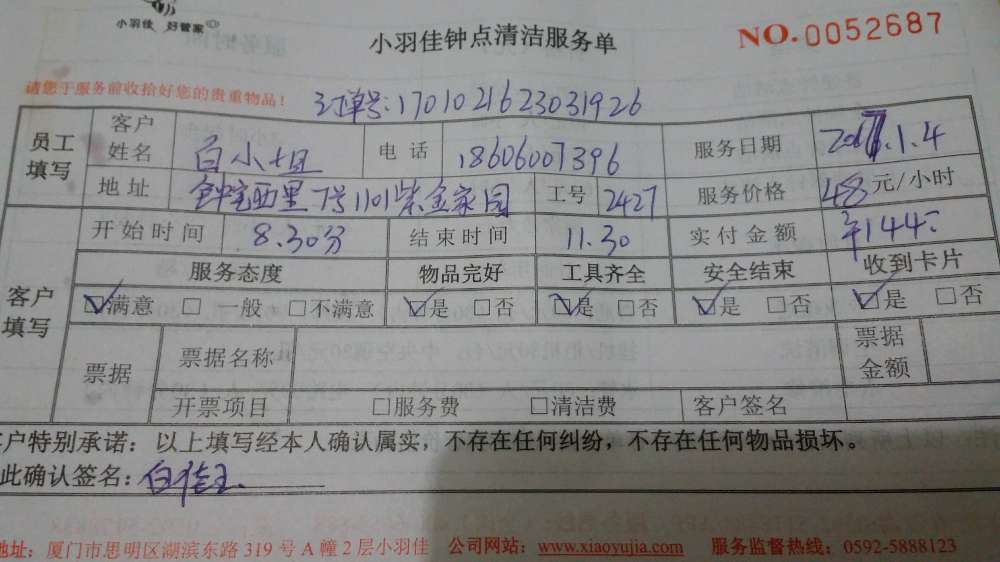 小羽佳 好管家
小羽佳钟点清洁服务单
NO.0052687
请您于服务前收拾好您的贵重物品！
订单号:1701021623031926
员工填写 客户姓名 白小姐 电话 18606007396 服务日期 2017.1.4
地址 钟宅西里7号1101紫金家园 工号 2427 服务价格 48元/小时
客户填写 开始时间 8.30分 结束时间 11.30 实付金额 ￥144
服务态度 物品完好 工具齐全 安全结束 收到卡片
☑满意 □一般 □不满意 ☑是 □否 ☑是 □否 ☑是 □否 ☑是 □否
票据 票据名称 票据金额
开票项目 □服务费 □清洁费 客户签名
客户特别承诺：以上填写经本人确认属实，不存在任何纠纷，不存在任何物品损坏。
此确认签名:白佳玉
地址：厦门市思明区湖滨东路319号A幢2层小羽佳 公司网站：www.xiaoyujia.com 服务监督热线：0592-5888123